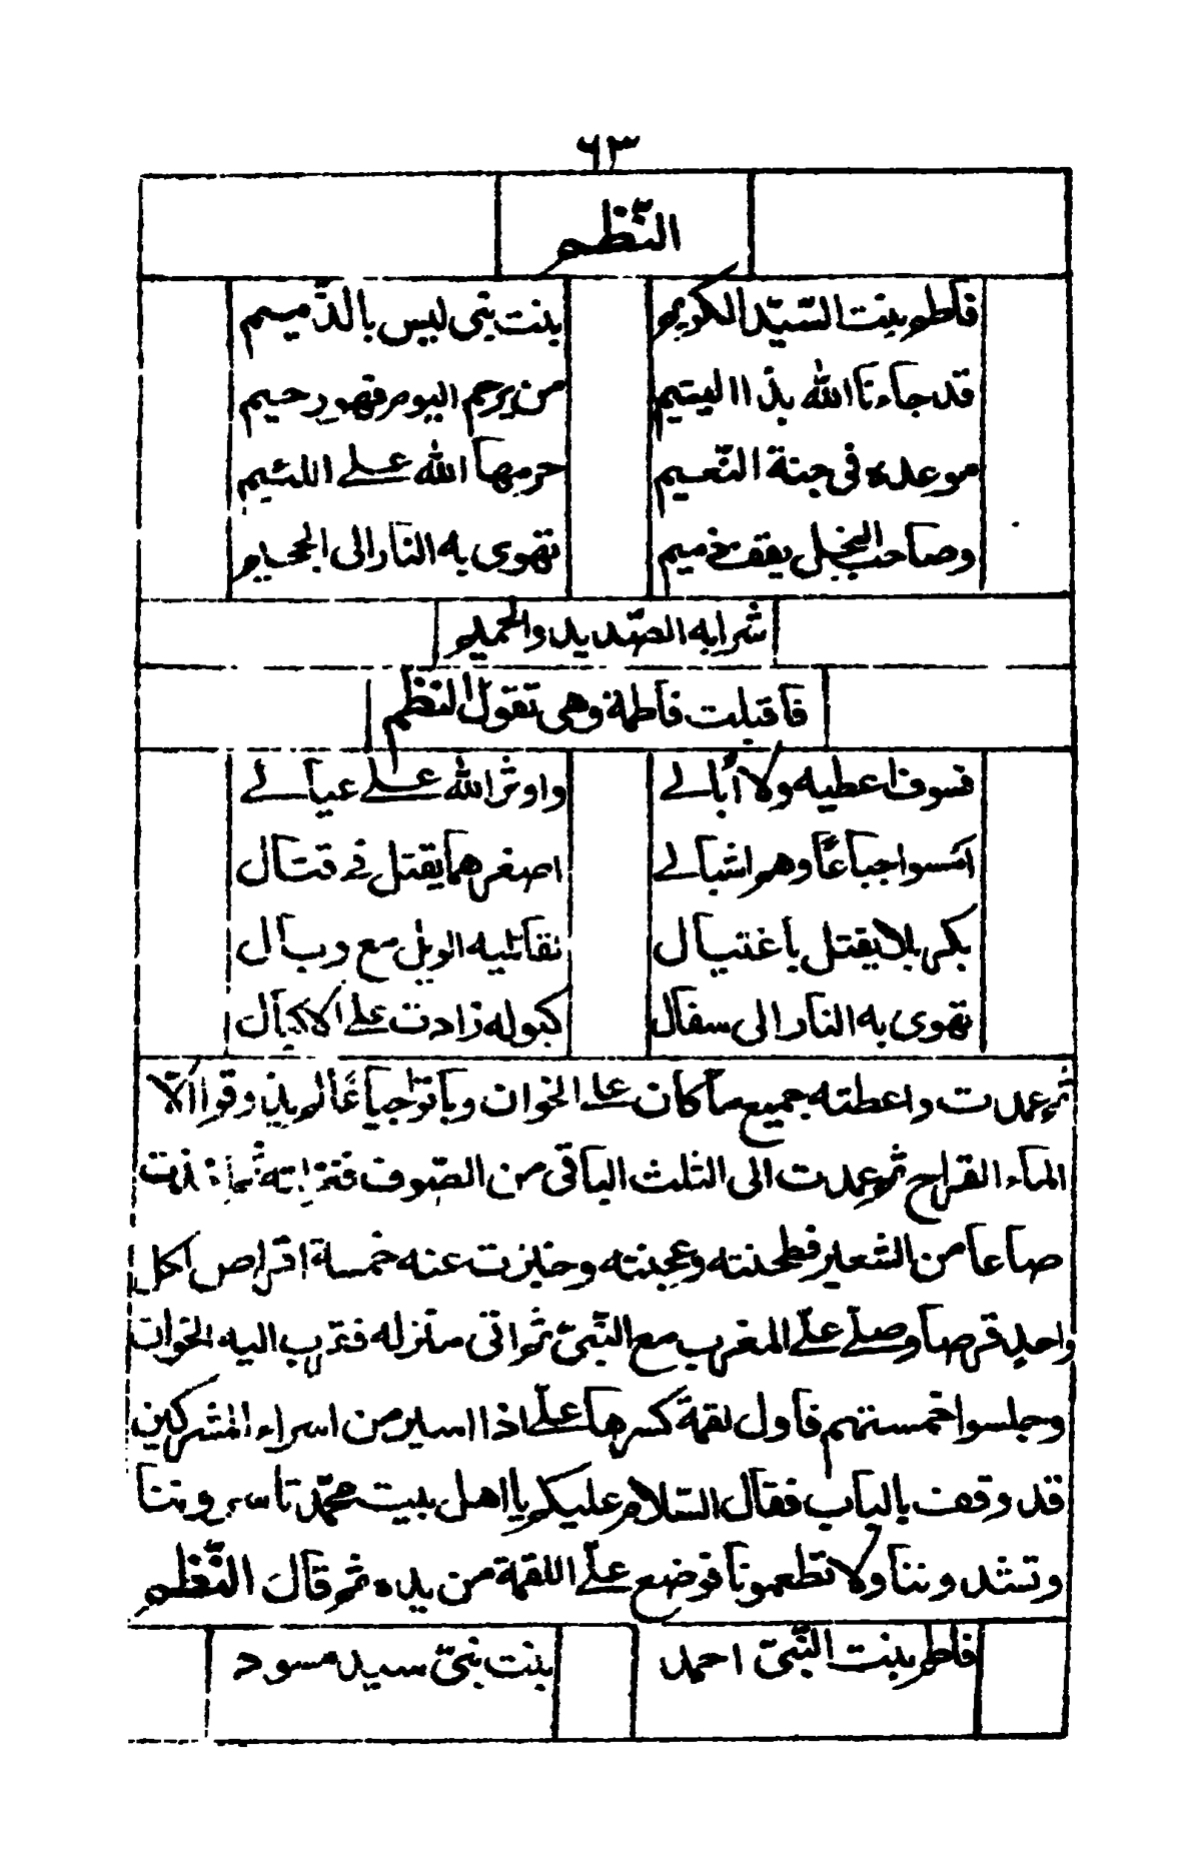 ٦٣
النّظم
فاطم بنت السّيّد الكريم بنت نبى ليس بالذّميم
قد جاءنا الله بذا اليتيم من يرحم اليوم فهو رحيم
موعده فى جنة النّعيم حرمها الله على اللئيم
وصاحب البخل يقف ذميم تهوى به النار الى الجحيم
شرابه الصّديد والحميم
فاقبلت فاطمة وهى تقول النّظم
فسوف اعطيه ولا أبالى واوثر الله على عيالى
امسوا جياعًا وهم اشبالى اصغرهما يقتل فى قتال
بكربلا يقتل باغتيال لقاتليه الويل مع وبال
تهوى به النار الى سفال كبوله زادت على الاكبال
ثم عمدت واعطته جميع ما كان على الخوان وباتوا جياعًا لم يذوقوا الّا
الماء القراح ثم عمدت الى الثلث الباقى من الصّوف فغزلته ثم اخذت
صاعا من الشعير فطحنته وعجنته وخبزت عنه خمسة اقراص لكل
واحد قرصا وصلّى علىّ المغرب مع النّبىّ ثم اتى منزله فقرب اليه الخوان
وجلسوا خمستهم فاول لقمة كسرها علىّ اذا اسير من اسراء المشركين
قد وقف بالباب فقال السّلام عليكم يا اهل بيت محمّد تاسروننا
وتشدوننا ولا تطعمونا فوضع علىّ اللقمة من يده ثم قال النّظم
فاطم بنت النّبىّ احمد بنت نبىّ سيد مسود